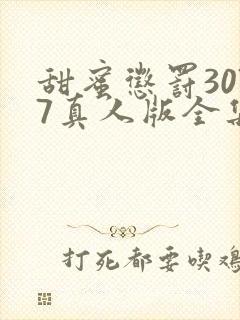 甜蜜懲罰30
7真人版全集
打死都要喫鸡